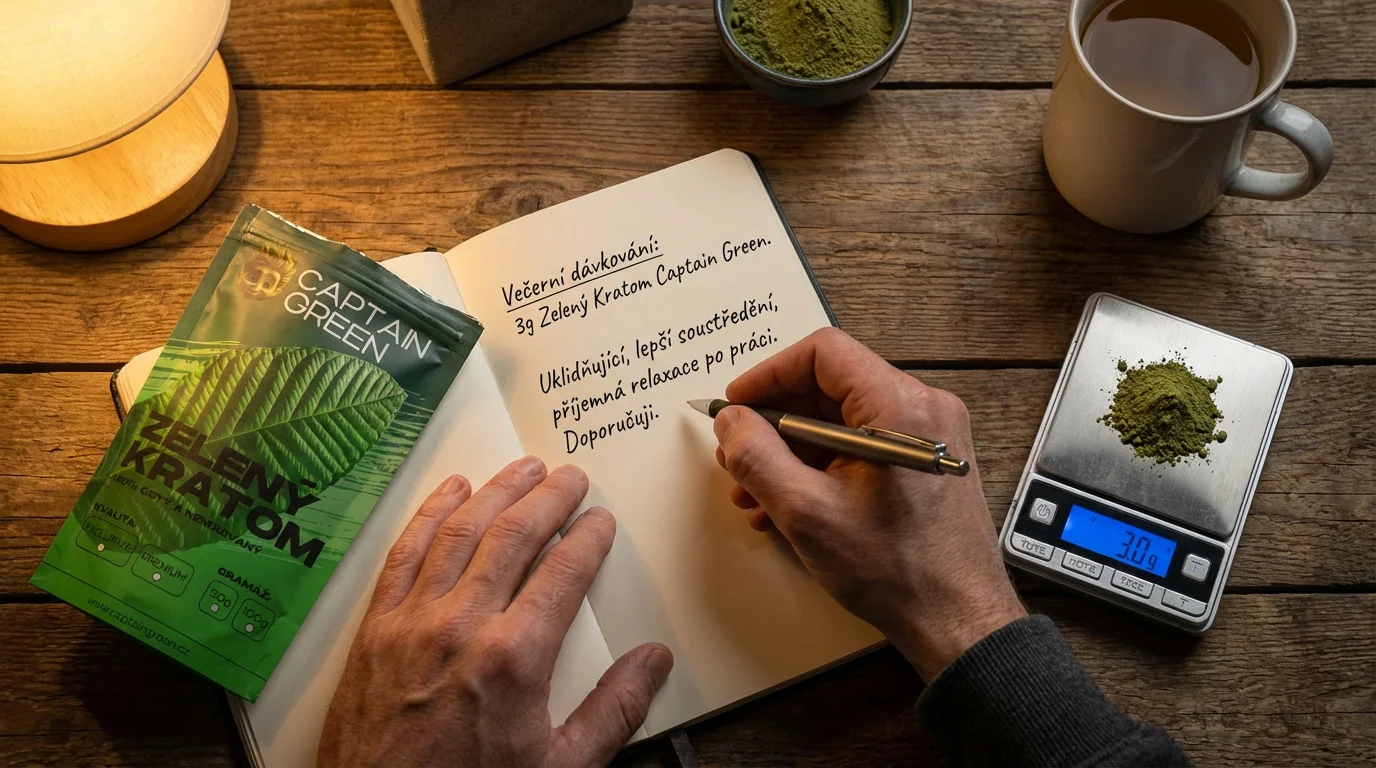 CAPTAIN
GREEN
ZELENÝ
KRATOM
100% ČISTÝ A
KVALITA:
EXCLUSIVE
PREMIUM
GRAMÁŽ
50g
100g
Večerní dávkování:
3g Zelený Kratom Captain Green.
Uklidňující, lepší soustředění,
příjemná relaxace po práci.
Doporučuji.
3.0g
T
T